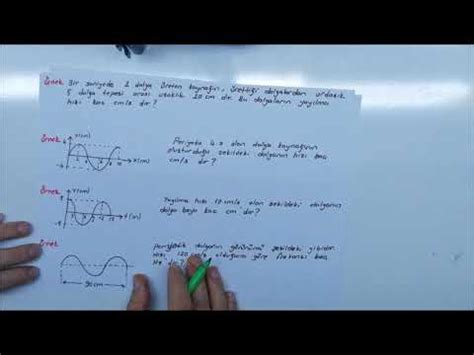 Örnek Bir saniyede 2 dalga üreten kaynağın, ürettiği dalgalardan ardışık
5 dalga tepesi arası uzaklık 20 cm dir. Bu dalgaların yayılma
hızı kaç cm/s dir?
Örnek y(cm)
x(cm)
Periyodu 4 s olan dalga kaynağının
oluşturduğu şekildeki dalganın hızı kaç
cm/s dir?
Örnek y(cm)
Yayılma hızı 10 cm/s olan şekildeki dalganın
dalga boyu kaç cm dir?
Örnek
Periyodik dalganın görünümü şekildeki gibidir.
Hızı 120 cm/s olduğuna göre frekansı kaç
Hz dir?
90cm